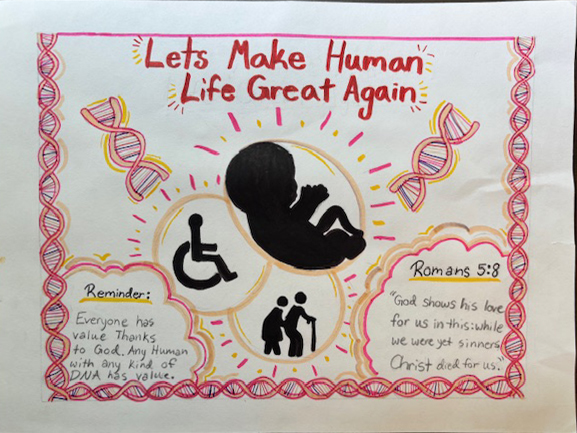 Lets Make Human
Life Great Again
Reminder:
Everyone has
value Thanks
to God. Any Human
with any kind of
DNA has value.
Romans 5:8
"God shows his love
for us in this: while
we were yet sinners
Christ died for us."